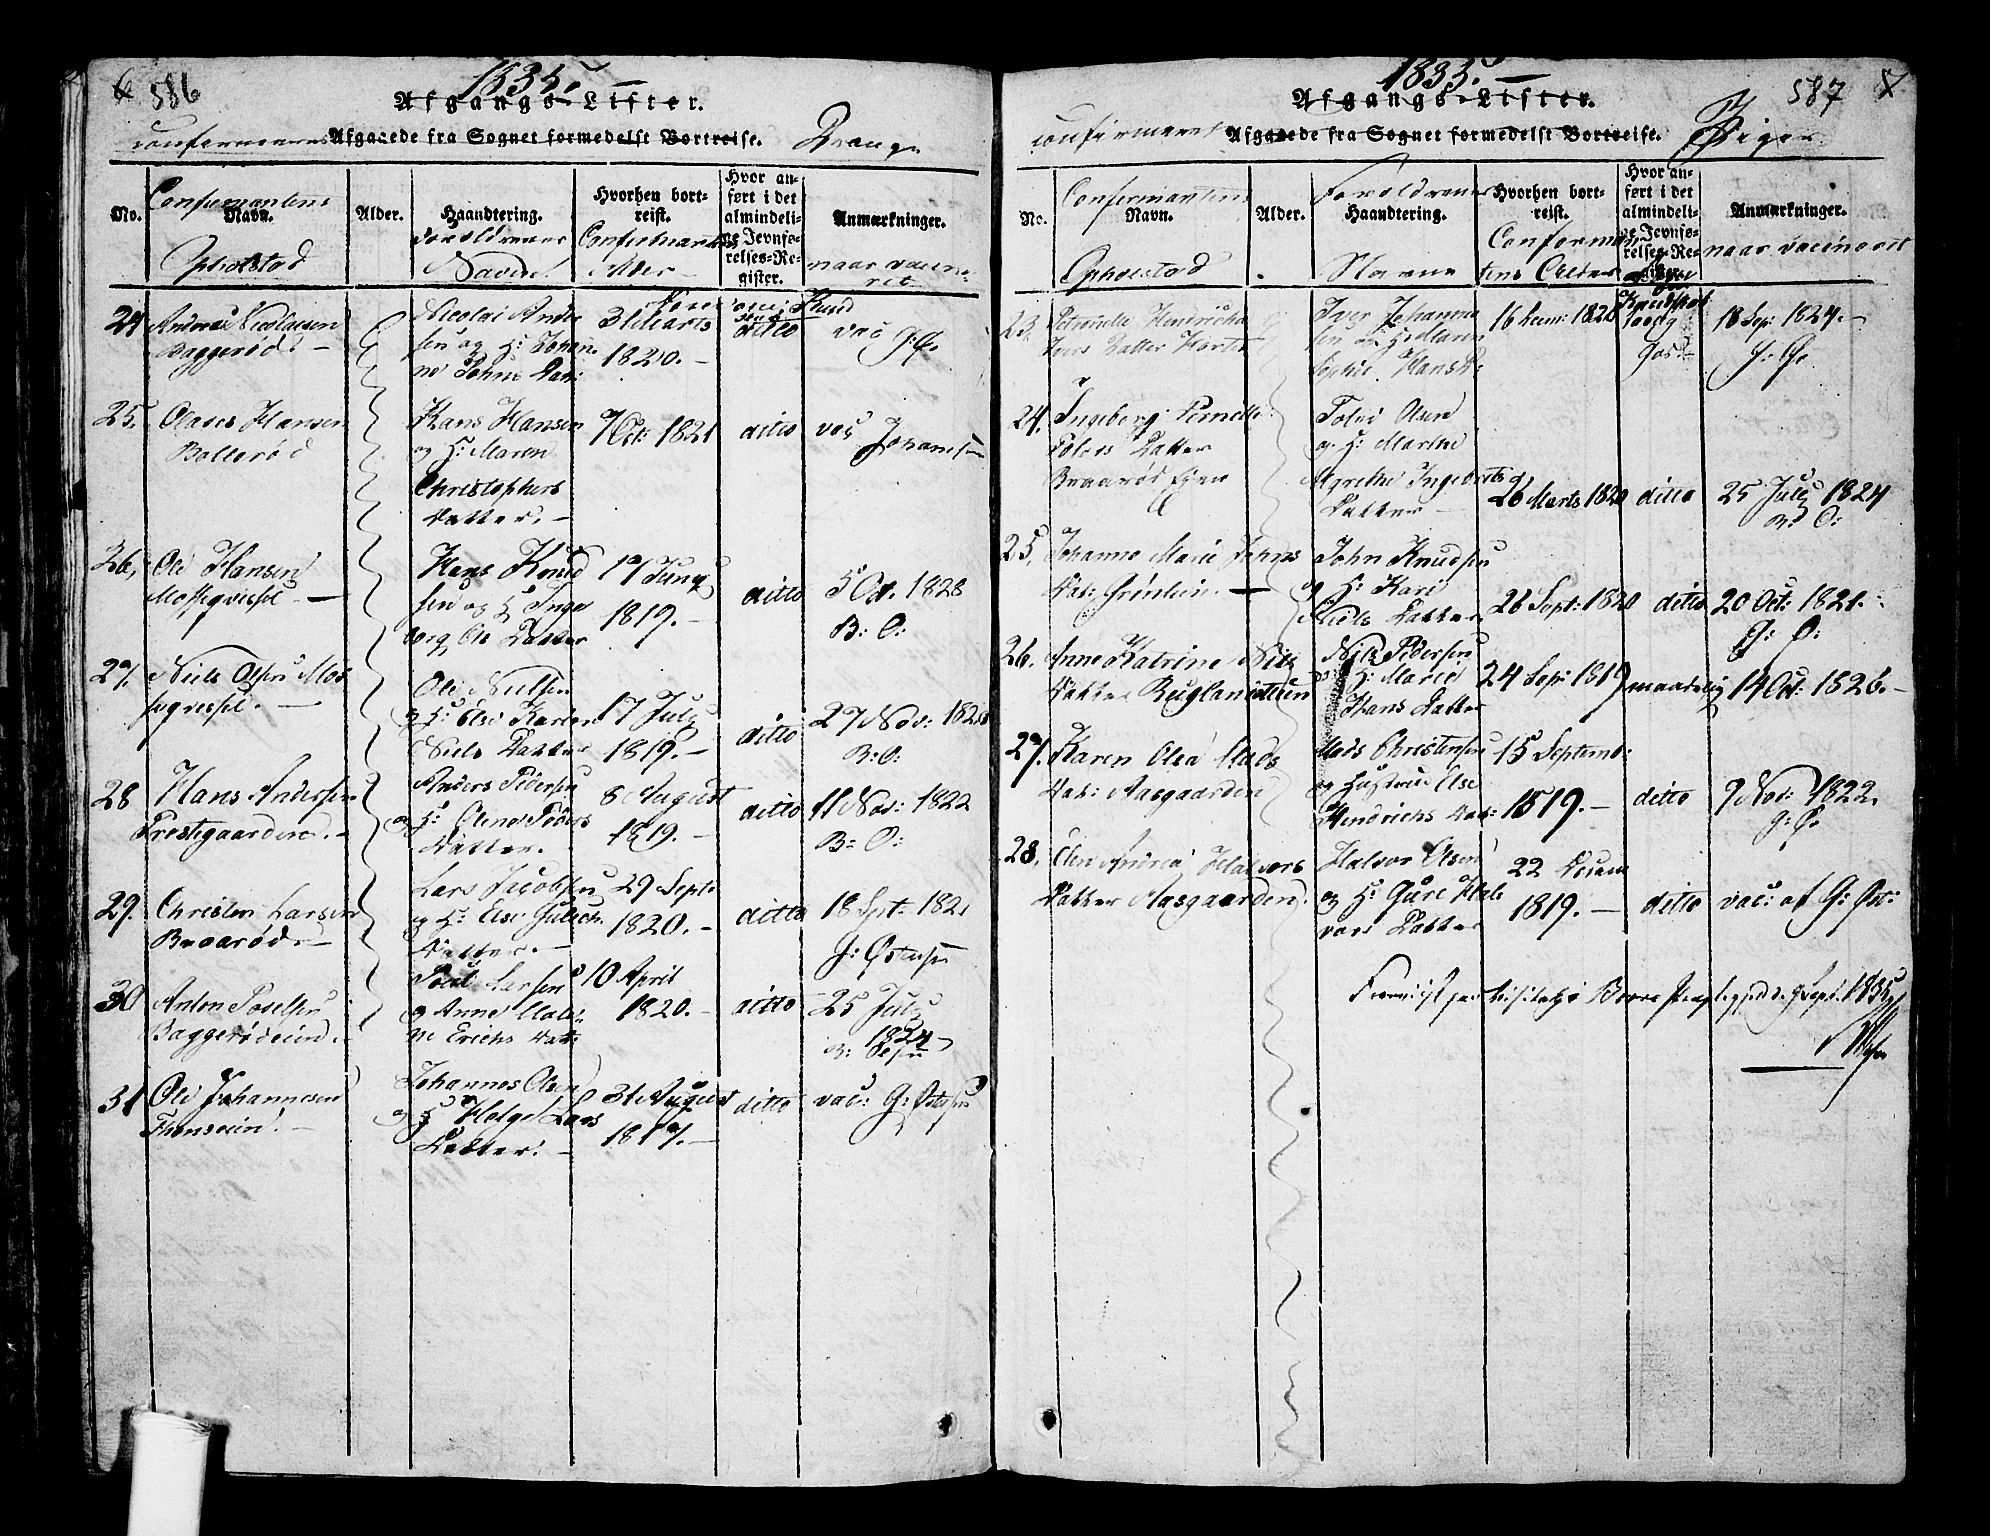 586
1835. —
Afgangs-Lister.
confirmerede Afgaaede fra Sognet formedelst Bortreise. Drenge
No.
Confirmantens
Navn.
Opholstæd
Alder.
Haandtering.
Foreldrenes
Navne
Hvorhen bort-
reist.
Confirmanten
Alder
Hvor an-
ført i det
almindeli-
ge Jevnfø-
relses-Re-
gister.
Anmærkninger.
naar vaccine-
ret
24 Anders Nicolaisen
Baggerød. —
Nicolai Ander
sen og H: Johan
ne Johns Dat:
31 Marts
1820. —
ditto
vac G: Ø:
25. Claves Hansen
Bollerød
Hans Hansen
og H: Maren
Christophers
Datter. —
7 Oct: 1821
ditto
vac Johansen
26, Ole Hansen
Mosseqvessel. —
Hans Knud
sen og H Inge
borg Ole Datter
19 Juny
1819. —
ditto
5 Oct. 1828
B: O:
27. Niels Olsen Mos
seqvessel. —
Ole Nielsen
og H: Else Karine
Niels Datter
17 July
1819. —
ditto
27 Nov: 1820
B: O:
28 Hans Andersen
Prestegaarden. —
Anders Pedersen
og H: Olene Peders
Datter. —
8 August
1819. —
ditto
11 Nov: 1822
B: O:
29. Christen Larsen
Braarød. —
Lars Jacobsen
og H: Else Gulich
Datter. —
29 Sept:
1820. —
ditto
18 Sept: 1821
G: Østensen
30 Anton Poulsen
Baggerødeiend. —
Poul Larsen
og Anne Male
ne Erichs Dat:
10 April
1820. —
ditto
25 July
1824
31 Ole Johannesen
Johannes Olsen
og H Helge Lars
Datter. —
31 August
1817. —
ditto
vac: G: Østensen
587
1835. —
Afgangs-Lister.
confirmerede Afgaaede fra Sognet formedelst Bortreise. Piger
No.
Confermantens
Navn.
Opholstæd
Alder.
Foreldrenes
Haandtering.
Navne
Hvorhen bort-
reist.
Conferman
tens Alder
Hvor an-
ført i det
almindeli-
ge Jevnfø-
relses-Re-
gister.
Anmærkninger.
naar vaccineret
23. Petronelle Hendricha
Ivers Datter Horten
Iver Johanne
sen & H: Maren
Sophie Hans D:
Kundskab
18 Sep: 1824. —
G: Ø:
24. Ingeborg Pernelle
Tolvs Datter
Braarød Eyen
Tolv Olsen
og H: Marthe
Agrethe Ingebrets
Datter —
26 Marts 1820
ditto
25 July 1824
B: O:
25. Johanne Marie Johns
Dat: Grønlien. —
John Knudsen
og H: Kari
Niels Datter
26 Sept: 1820
ditto
20 Oct: 1821.
G: Ø:
26. Anne Katrine Nils
Datter
Nils Pedersen
og H: Marie
Hans Datter
24 Sep: 1819
maadelig
14 Oct: 1826. —
27. Karen Olea Mads
Dat: Aasgaarden
Mads Christensen
og Hustrue Else
Hendrichs Dat:
15 Septemb:
1819. —
ditto
9 Nov: 1822.
G: Ø
28. Elen Andrea Halvors
Datter Aasgaarden.
Halvor Olsen
og H: Gure Hal
vors Datter
22 Decem
1819. —
ditto
vac: af G: Øst:
Fremvist paa Visitatz i Borre Præstegjeld d. 9 Sept. 1835